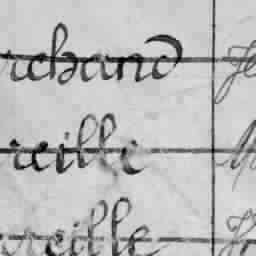 rchand
reille
reille